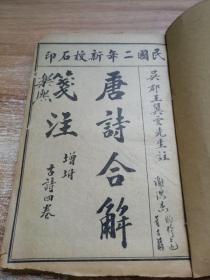 民國二年新校石印
吳郡王翼雲先生註
唐詩合解
箋注
增坿
古詩四卷